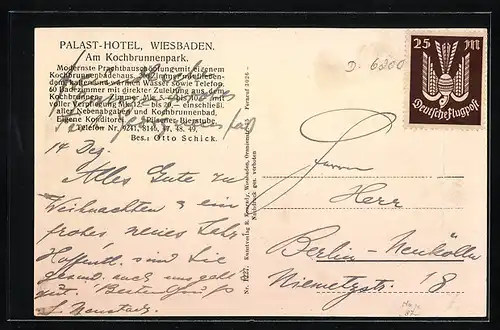 PALAST-HOTEL, WIESBADEN.
Am Kochbrunnenpark.
Modernste Prachtbauschöpfung mit eigenem
Kochbrunnenbadehaus. Zimmer mit fließen-
dem kalten und warmen Wasser sowie Telefon.
60 Badezimmer mit direkter Zuleitung aus dem
Kochbrunnen. Zimmer Mk. 5.— bis 10.— mit
voller Verpflegung Mk. 12.— bis 20.— einschließl.
aller Nebenabgaben und Kochbrunnenbad.
Eigene Konditorei. Pilsener Bierstube.
Telefon Nr. 9241, 8146, 47, 48, 49.
Bes.: Otto Schick.
14 Dez.
Alles Gute zu
Weihnachten & ein
frohes neues Jahr
Hoffentl. sind Sie
gesund auch uns geht
gut. Beste Grüße
Nr. 4227. Kunstverlag R. Wiesbaden,
Nachdruck ges. verboten
D. 6200
25 M
Deutsche Flugpost
Herrn
Herr
Berlin-Neukölln
Niemetzstr. 18